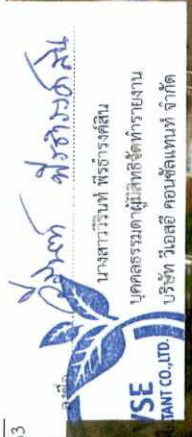 ลงชื่อ
นางสาววิรินท์ พีรธำรงค์สิน
บุคคลธรรมดาผู้มีสิทธิจัดทำรายงาน
บริษัท วีเอสอี คอนซัลแทนท์ จำกัด
VSE
TANT CO.,LTD.